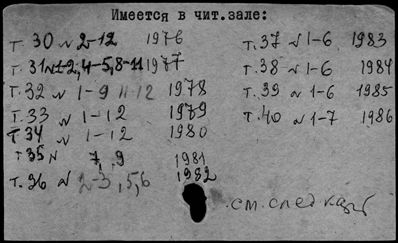 Имеется в чит.зале:
т. 30 № 2-12 1976
т. 31 №1-2, 4-5, 8-11 1977
т. 32 № 1-9 11-12 1978
т. 33 № 1-12 1979
т 34 № 1-12 1980
т 35 № 7, 9 1981
т. 36 № 2-3, 5, 6 1982
т. 37 № 1-6 1983
т. 38 № 1-6 1984
т. 39 № 1-6 1985
т. 40 № 1-7 1986
см. след